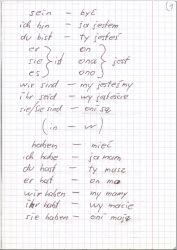 1
sein – być
ich bin – ja jestem
du bist – ty jesteś
er on
sie } ist ona } jest
es ono
wir sind – my jesteśmy
ihr seid – wy jesteście
sie/Sie sind – oni są
(in – w)
haben – mieć
ich habe – ja mam
du hast – ty masz
er hat – on ma
wir haben – my mamy
ihr habt – wy macie
sie haben – oni mają